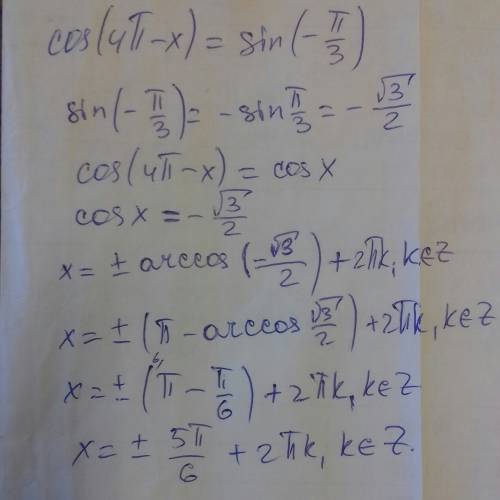 cos(4π-x) = sin(-π/3)
sin(-π/3) = -sin π/3 = -√3/2
cos(4π-x) = cos x
cos x = -√3/2
x = ± arccos(-√3/2) + 2πk, k∈Z
x = ± (π - arccos √3/2) + 2πk, k∈Z
x = ± (⁶⁾π - π/6) + 2πk, k∈Z
x = ± 5π/6 + 2πk, k∈Z.